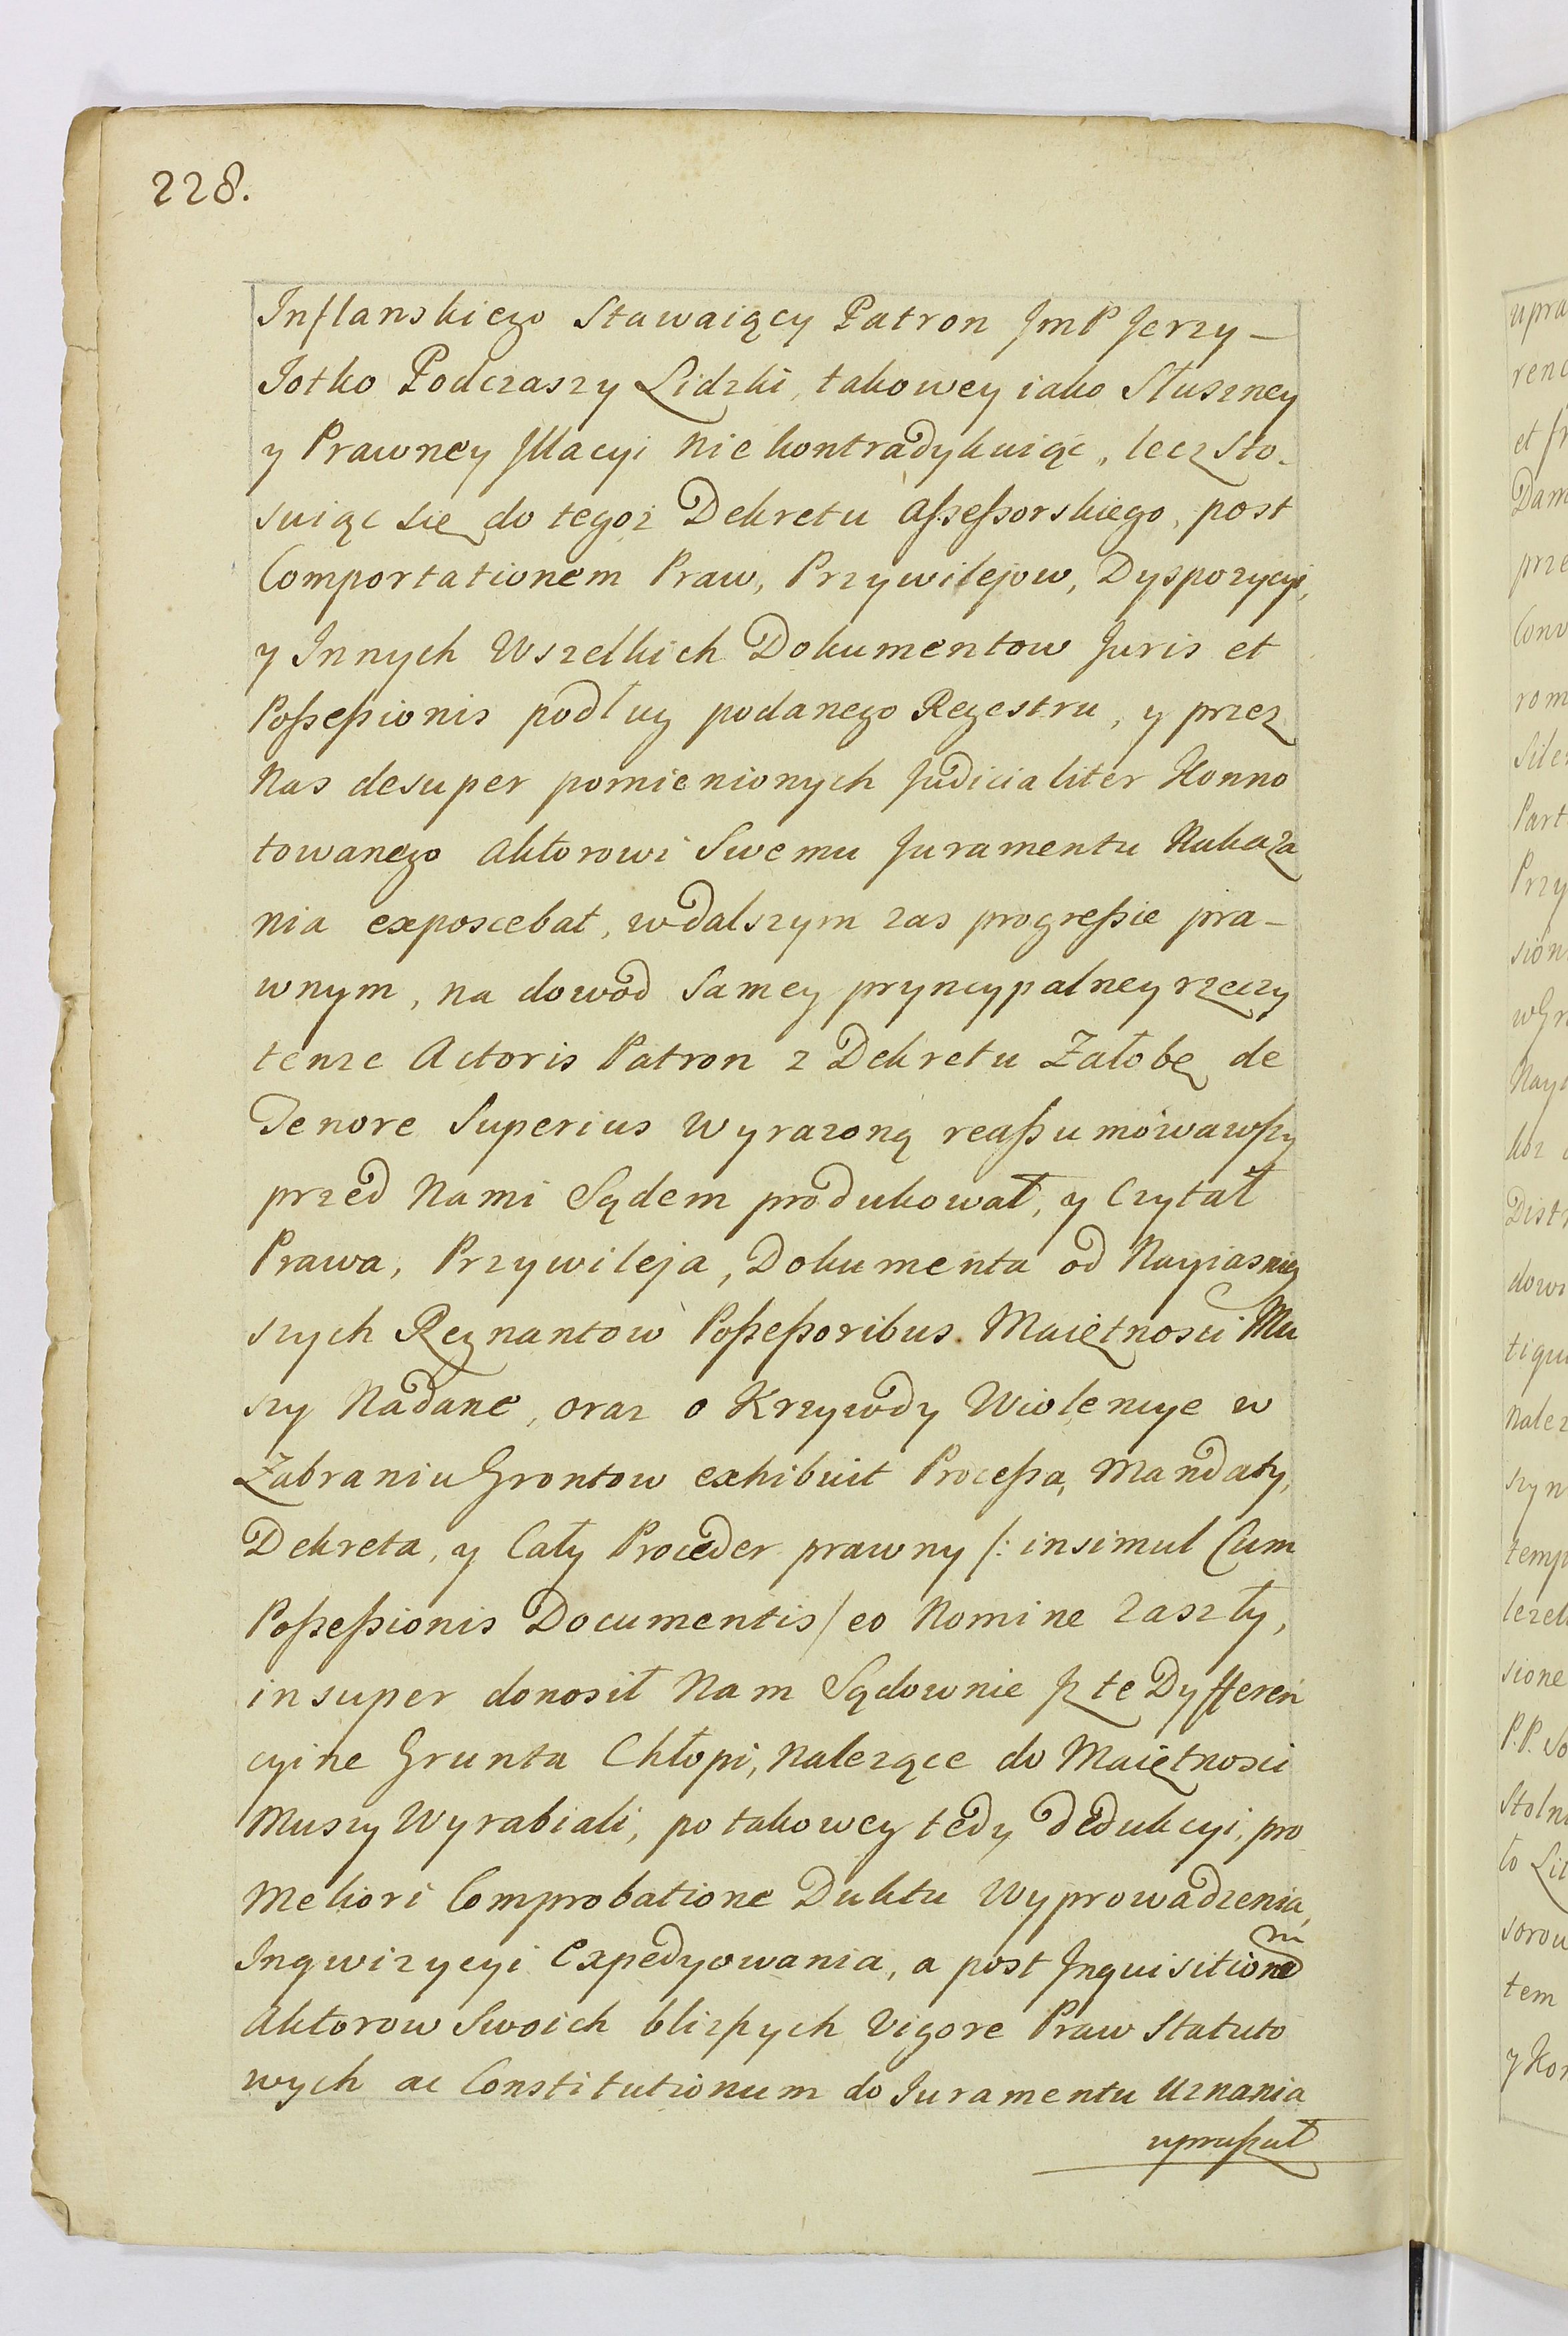 228.
Inflanskiego Stawaiący Patron JmP Jerzy –
Jotko Podczaszy Lidzki, takowey iako Słuszney
y Prawney Illacyi nie kontradykuiąc, lecz sto-
suiąc się do tegoz Dekretu aßeßorskiego, post
Comportationem Praw, Przywilejow, Dyspozycyi,
y Innych Wszelkich Dokumentow Juris et
Poßeßionis podług podanego Regestru, y przez
Nas desuper pomienionych Judicialiter Konno
towanego Aktorowi Swemu Juramentu Nakaza
nia exposcebat, w dalszym zas progreßie pra-
wnym, na dowod Samey pryncypalney rzeczy
tenze Actoris Patron z Dekretu Załobę de
Tenore Superius Wyrazoną reaßumowawßy
przed Nami Sądem produkował, y Czytał
Prawa, Przywileja, Dokumenta od Nayiasniey
szych Regnantow Poßeßoribus Maiętnosci Mu
szy Nadane, oraz o Krzywdy Wiolencye w
Zabraniu Grontow exhibuit Proceßa, Mandaty,
Dekreta, y Cały Proceder prawny /: insimul Cum
Poßeßionis Documentis / eo Nomine Zaszły,
insuper donosił Nam Sądownie Jz te Dyfferen
cyine Grunta Chłopi, Nalezące do Maiętnosci
Muszy Wyrabiali, po takowey tedy dedukcyi, pro
Meliori Comprobatione Duktu Wyprowadzenia,
Inqwizycyi Expedyowania, a post Inquisitionem
Aktorow Swoich blizßych Vigore Praw Statuto
wych ac Constitutionum do Juramentu Uznania
upraßał
upra
renc
et
Dam
prze
Conv
rom
Silen
Part
Przy
sion
Nay
Dist
dowo
tiqu
Nalez
szyn
temp
sione
P.P. So
Stoln
to
sorow
tem
y Kon